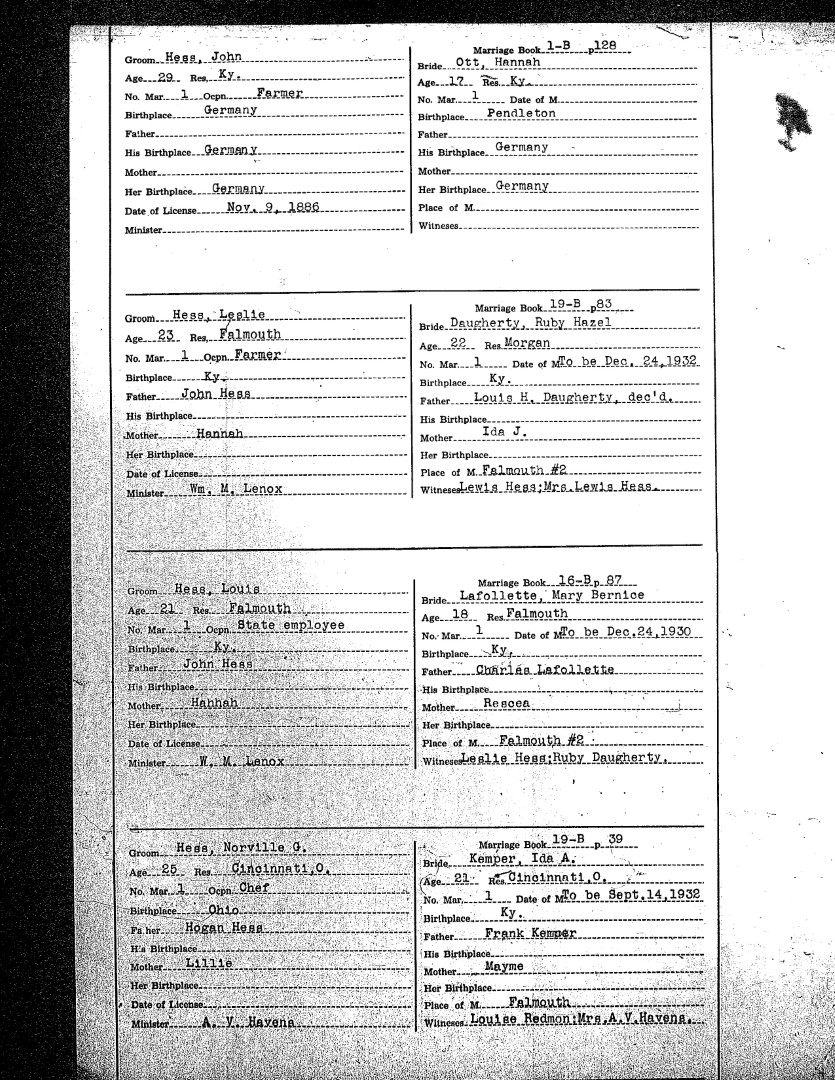 Groom Hess, John
Age 29 Res. Ky.
No. Mar. 1 Ocpn. Farmer
Birthplace Germany
Father
His Birthplace Germany
Mother
Her Birthplace Germany
Date of License Nov. 9, 1886
Minister
Marriage Book 1-B p128
Bride Ott, Hannah
Age 17 Res. Ky.
No. Mar. 1 Date of M.
Birthplace Pendleton
Father
His Birthplace Germany
Mother
Her Birthplace Germany
Place of M.
Witneses
Groom Hess, Leslie
Age 23 Res. Falmouth
No. Mar. 1 Ocpn. Farmer
Birthplace Ky.
Father John Hess
His Birthplace
Mother Hannah
Her Birthplace
Date of License
Minister Wm. M. Lenox
Marriage Book 19-B p83
Bride Daugherty, Ruby Hazel
Age 22 Res. Morgan
No. Mar. 1 Date of M. To be Dec. 24, 1932
Birthplace Ky.
Father Louis H. Daugherty, dec'd.
His Birthplace
Mother Ida J.
Her Birthplace
Place of M. Falmouth #2
Witneses Lewis Hess; Mrs. Lewis Hess.
Groom Hess, Louis
Age 21 Res. Falmouth
No. Mar. 1 Ocpn. State employee
Birthplace Ky.
Father John Hess
His Birthplace
Mother Hannah
Her Birthplace
Date of License
Minister W. M. Lenox
Marriage Book 16-B p. 87
Bride Lafollette, Mary Bernice
Age 18 Res. Falmouth
No. Mar. 1 Date of M. To be Dec. 24, 1930
Birthplace Ky.
Father Charles Lafollette
His Birthplace
Mother Rescea
Her Birthplace
Place of M. Falmouth #2
Witneses Leslie Hess; Ruby Daugherty.
Groom Hess, Norville G.
Age 25 Res. Cincinnati, O.
No. Mar. 1 Ocpn. Chef
Birthplace Ohio
Father Hogan Hess
His Birthplace
Mother Lillie
Her Birthplace
Date of License
Minister A. V. Havens
Marriage Book 19-B p. 39
Bride Kemper, Ida A.
Age 21 Res. Cincinnati, O.
No. Mar. 1 Date of M. To be Sept. 14, 1932
Birthplace Ky.
Father Frank Kemper
His Birthplace
Mother Mayme
Her Birthplace
Place of M. Falmouth
Witneses Louise Redmon; Mrs. A. V. Havens.